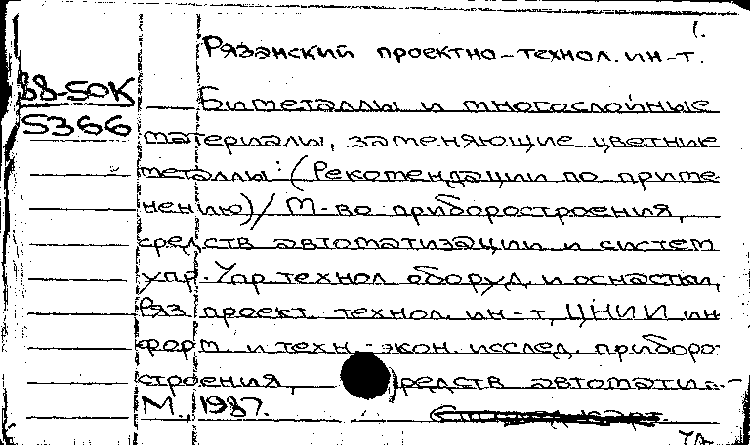 1.
Рязанский проектно-технол. ин-т.
88-50К
5366
Биметаллы и многослойные
материалы, заменяющие цветные
металлы: (Рекомендации по приме-
нению) / М-во приборостроения,
средств автоматизации и систем
упр. Упр технол оборуд. и оснастки,
Ряз проект. технол. ин-т, ЦНИИ ин
форм. и техн.-экон. исслед. приборо-
строения, средств автоматиз.-
М., 1987.